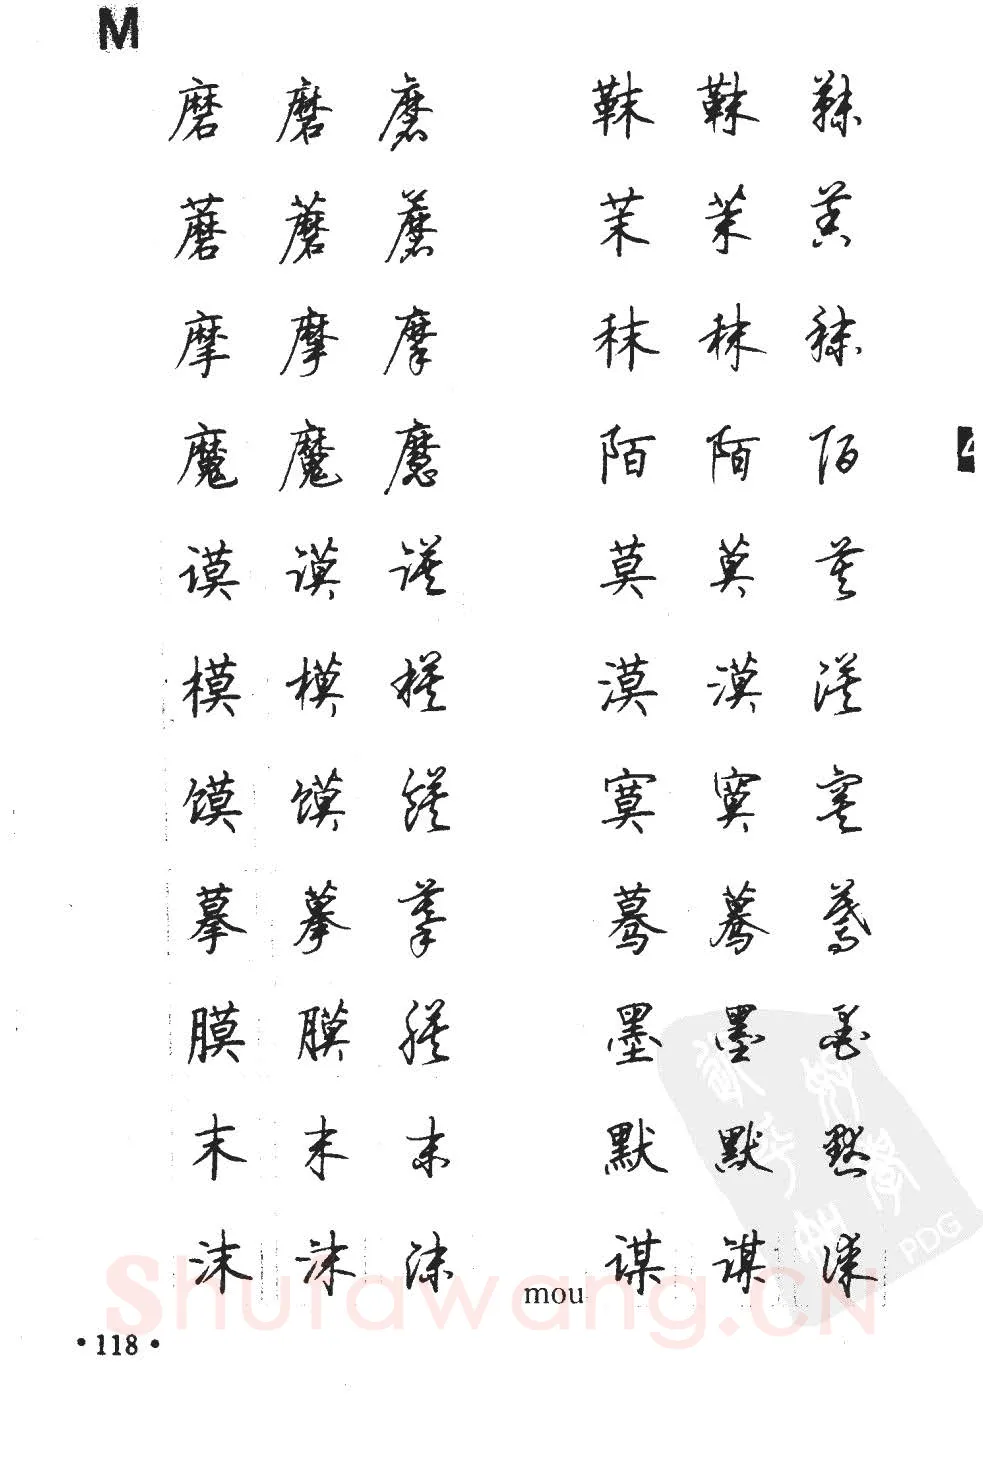 M
磨 磨 磨
蘑 蘑 蘑
摩 摩 摩
魔 魔 魔
谟 谟 谟
模 模 模
馍 馍 馍
摹 摹 摹
膜 膜 膜
末 末 末
沫 沫 沫
靺 靺 靺
茉 茉 茉
秣 秣 秣
陌 陌 陌
莫 莫 莫
漠 漠 漠
寞 寞 寞
蓦 蓦 蓦
墨 墨 墨
默 默 默
mou
谋 谋 谋
·118·
Shufawang.CN
PDG